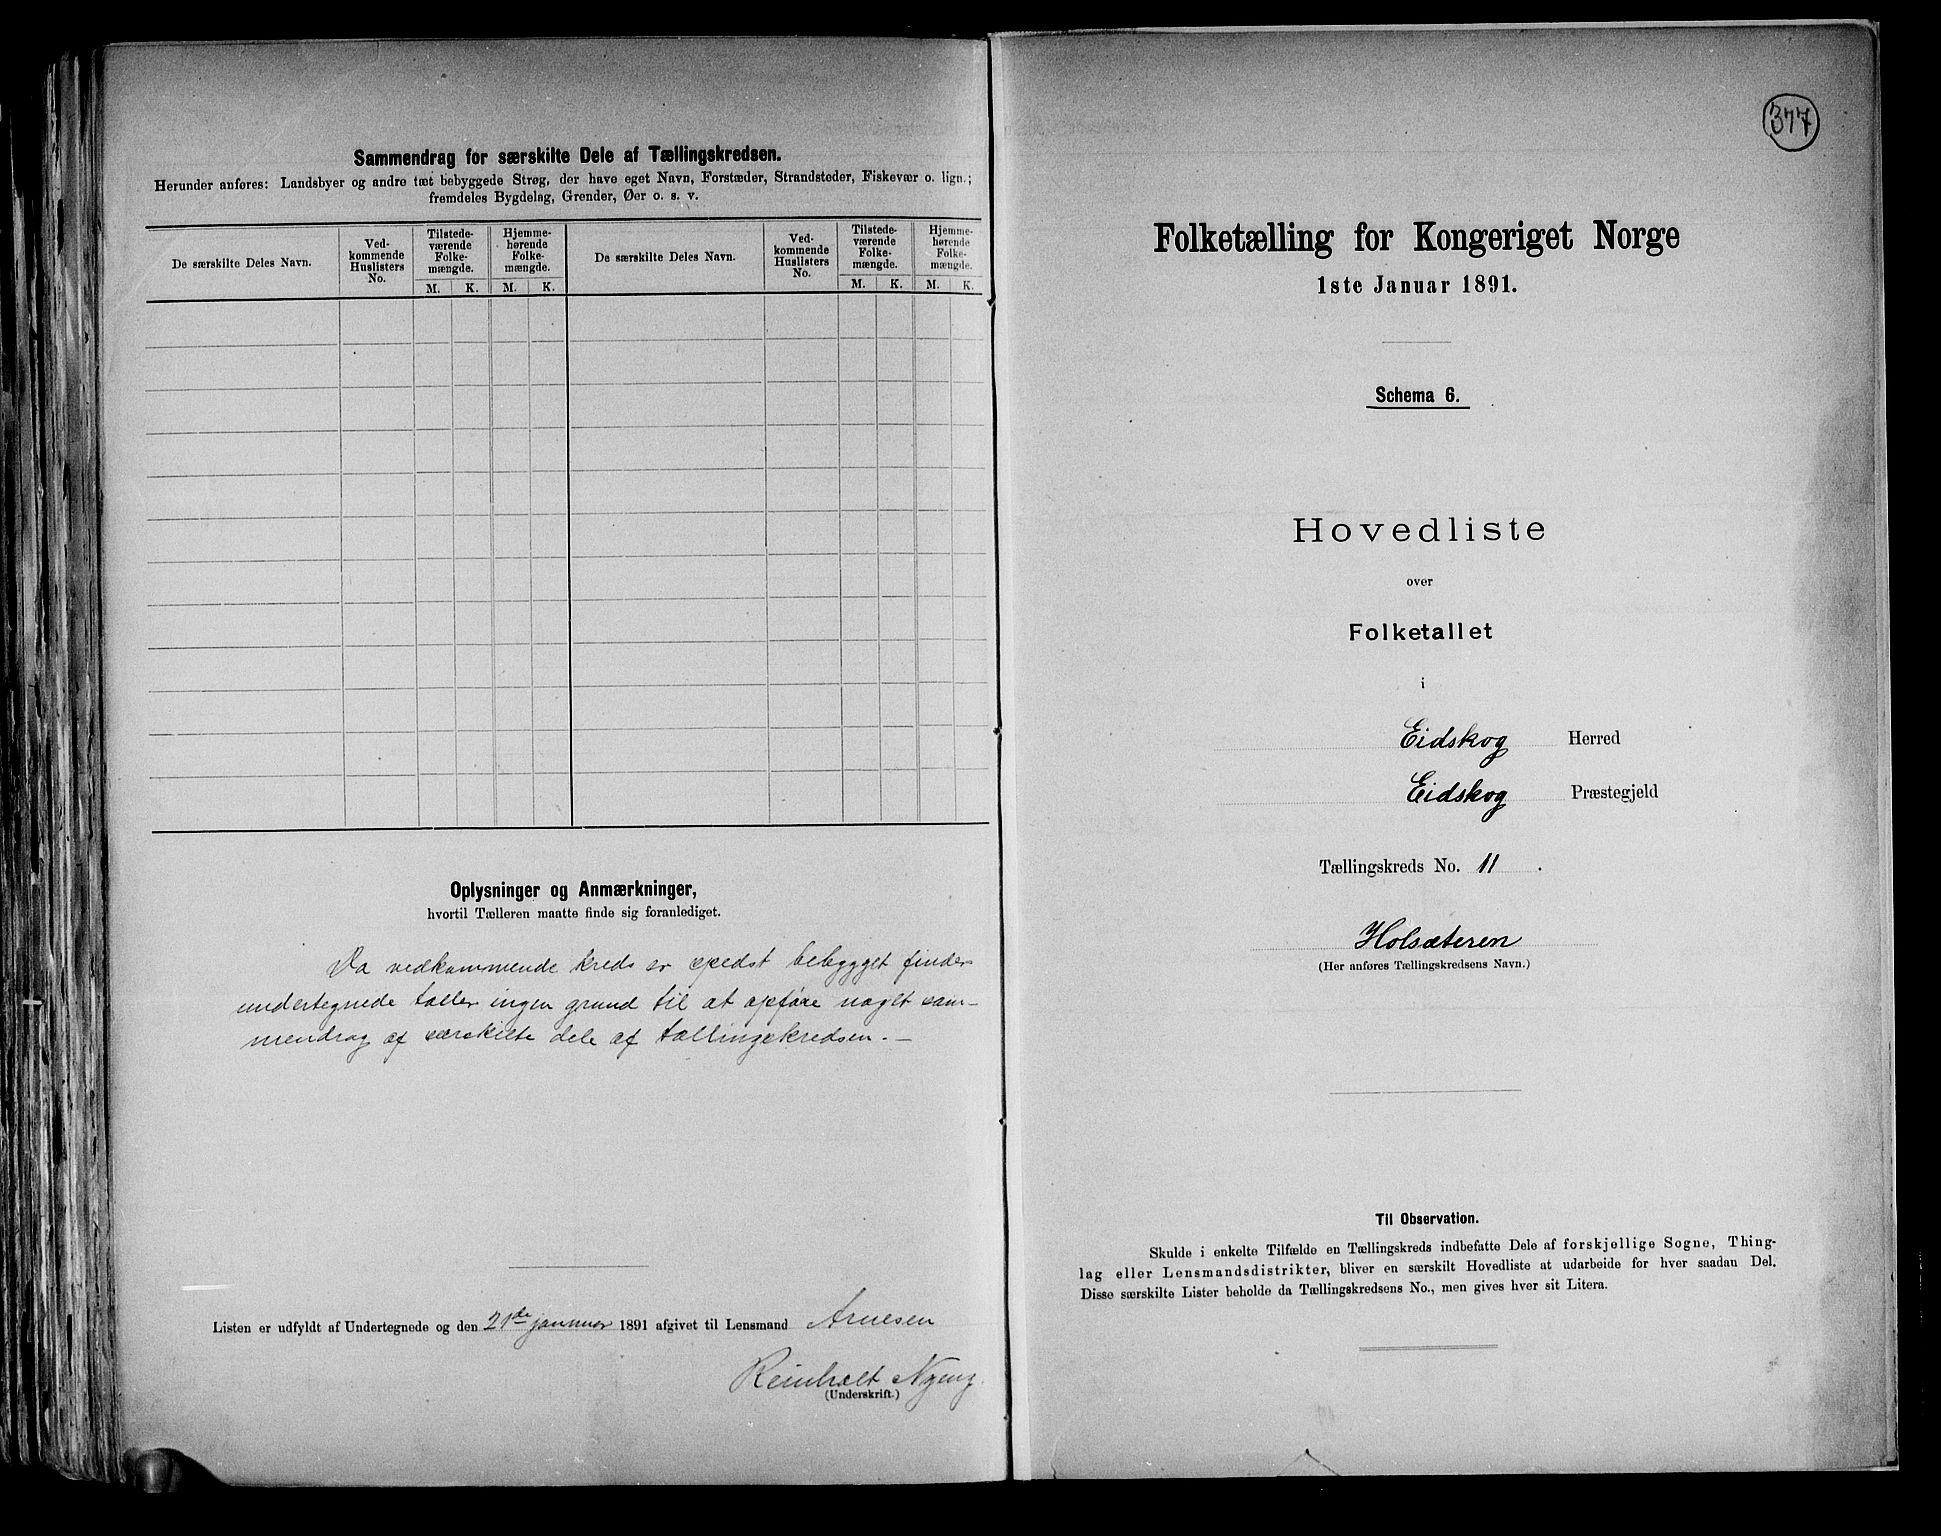 Sammendrag for særskilte Dele af Tællingskredsen.
Herunder anføres: Landsbyer og andre tæt bebyggede Strøg, der have eget Navn, Forstæder, Strandsteder, Fiskevær o. lign.;
fremdeles Bygdelag, Grender, Øer o. s. v.
De særskilte Deles Navn.
Ved-
kommende
Huslisters
No.
Tilstede-
værende
Folke-
mængde.
Hjemme-
hørende
Folke-
mængde.
M. K. M. K.
De særskilte Deles Navn.
Ved-
kommende
Huslisters
No.
Tilstede-
værende
Folke-
mængde.
Hjemme-
hørende
Folke-
mængde.
M. K. M. K.
Oplysninger og Anmærkninger,
hvortil Tælleren maatte finde sig foranlediget.
Da vedkommende kreds er spedst bebygget finder
undertegnede tæller ingen grund til at opføre noget sam-
mendrag af særskilte dele af tællingskredsen. —
Listen er udfyldt af Undertegnede og den 21de januar 1891 afgivet til Lensmand Arnesen
Reinholt
(Underskrift.)
377
Folketælling for Kongeriget Norge
1ste Januar 1891.
Schema 6.
Hovedliste
over
Folketallet
i
Eidskog Herred
Eidskog Præstegjeld
Tællingskreds No. 11.
Holsæteren
(Her anføres Tællingskredsens Navn.)
Til Observation.
Skulde i enkelte Tilfælde en Tællingskreds indbefatte Dele af forskjellige Sogne, Thing-
lag eller Lensmandsdistrikter, bliver en særskilt Hovedliste at udarbeide for hver saadan Del.
Disse særskilte Lister beholde da Tællingskredsens No., men gives hver sit Litera.